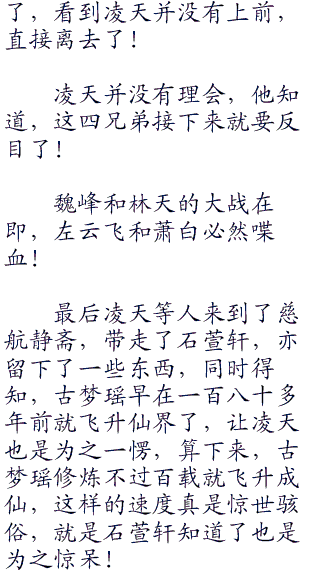 了，看到凌天并没有上前，
直接离去了！
凌天并没有理会，他知
道，这四兄弟接下来就要反
目了！
魏峰和林天的大战在
即，左云飞和萧白必然喋
血！
最后凌天等人来到了慈
航静斋，带走了石萱轩，亦
留下了一些东西，同时得
知，古梦瑶早在一百八十多
年前就飞升仙界了，让凌天
也是为之一愣，算下来，古
梦瑶修炼不过百载就飞升成
仙，这样的速度真是惊世骇
俗，就是石萱轩知道了也是
为之惊呆！